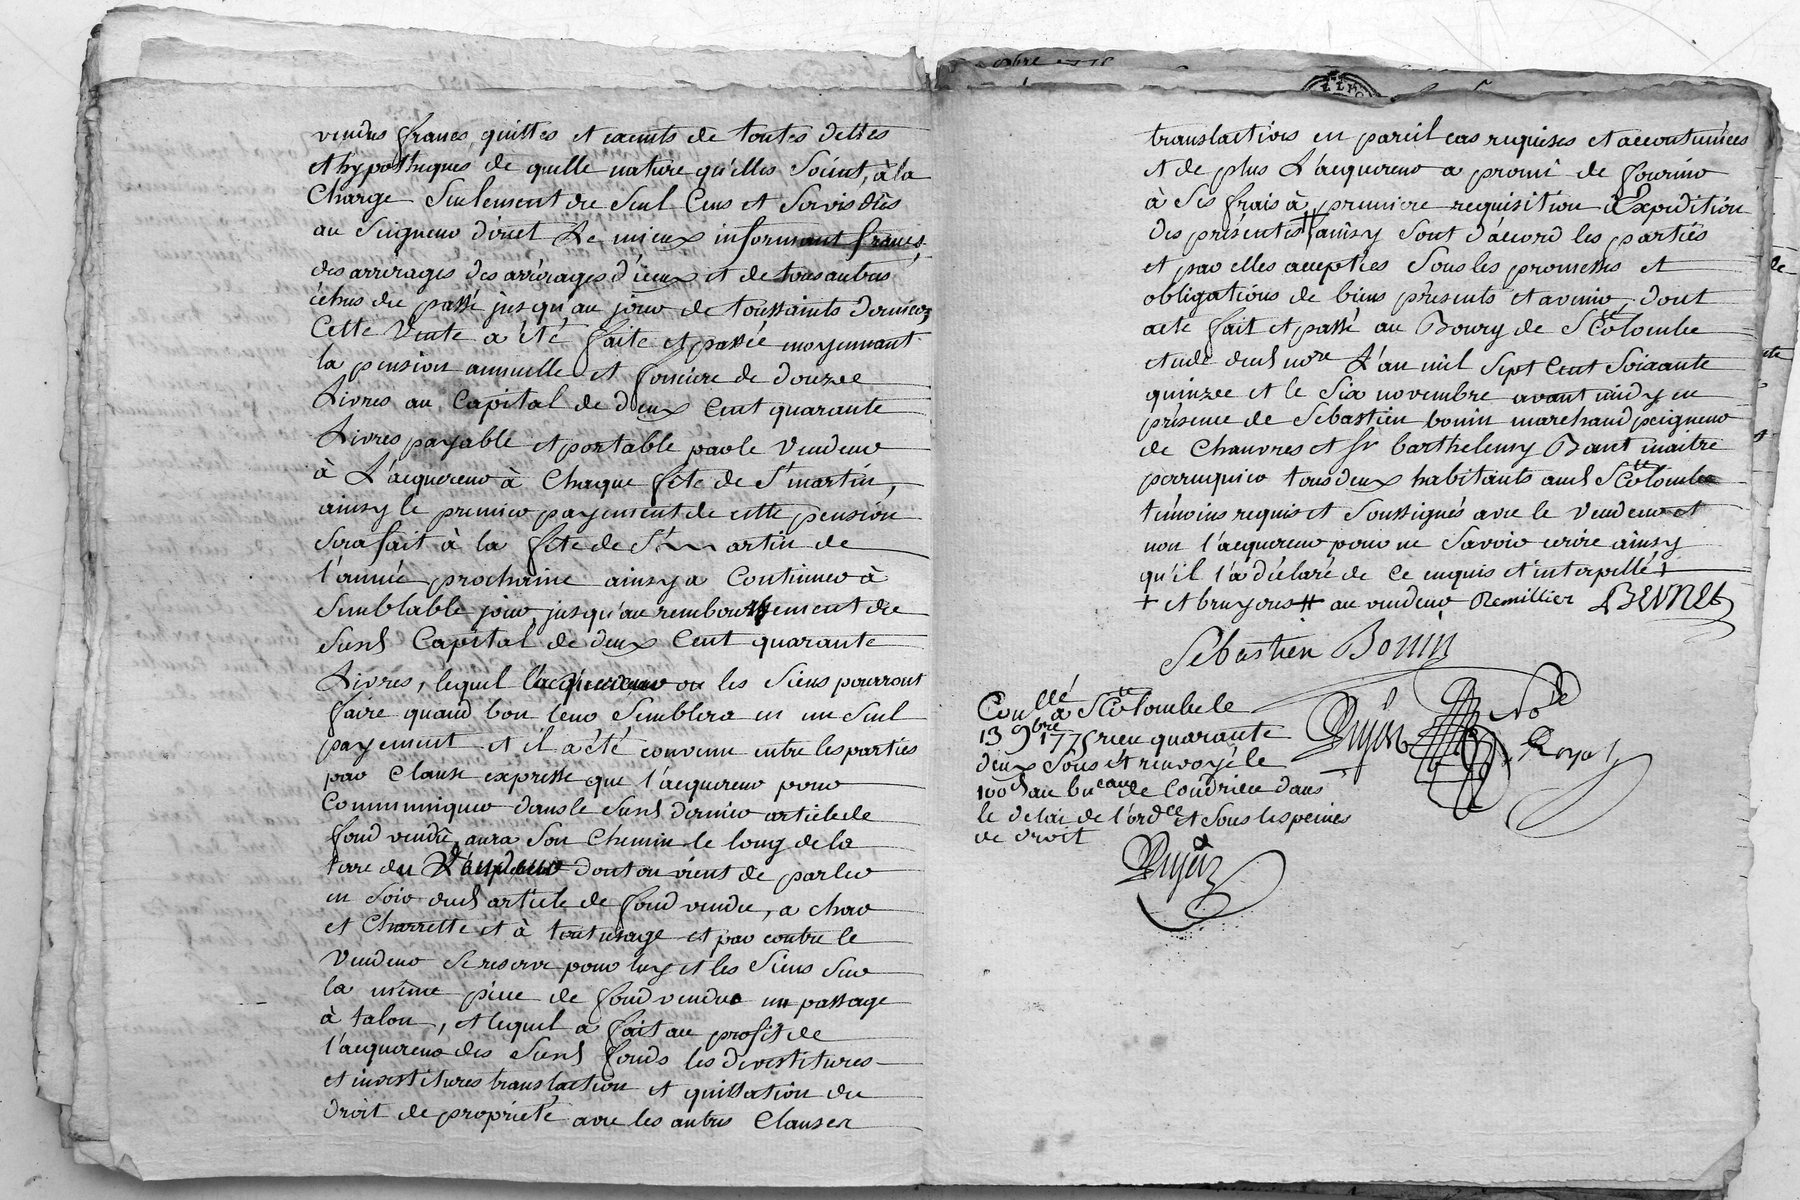 vendus francs, quittes et exemts de toutes dettes
et hypotheques de quelle nature qu'elles soient, à la
charge seulement de seul Cens et Servis dûs
au Seigneur direct Le mieux informant francs
des arrérages des arrérages d'iceux et de tous autres
échus du passé jusqu'au jour de toussaints dernier,
Cette Vente a été faite et passée moyennant
la pension annuelle et fonciere de douze
Livres au Capital de deux Cent quarante
Livres payable et portable par le Vendeur
à L'acquereur à Chaque fête de St martin,
ainsy le premier payement de cette pension
sera fait à la fête de St martin de
l'année prochaine ainsy a Continuer à
semblable jour, jusqu'au remboursement du
susd Capital de deux Cent quarante
Livres, lequel l'acquereur ou les Siens pourront
faire quand bon leur Semblera en un Seul
payement et il a été convenu entre les parties
par Clause expresse que l'acquereur pour
Communiquer dans le susd dernier article de
fond vendu, aura Son Chemin le long de la
terre du dont on vient de parler
en Soir dud article de fond vendu, a char
et Charrette et à tout usage et par contre le
Vendeur se reserve pour luy et les Siens sur
la même piece de fond vendue un passage
à talon, et lequel a fait au profit de
l'acquereur des Susd fonds les devestitures
et investitures translaction et quittation du
droit de propriété avec les autres Clauses
translactives en pareil cas requises et accoutumées
et de plus L'acquereur a promi de fournir
à Ses frais à premiere requisition Expedition
des présentes # ainsy Sont d'accord les parties
et par elles acceptées Sous les promesses et
obligations de biens présents et avenir, dont
acte fait et passé au Bourg de Ste Colombe
etude dud nore L'an mil Sept Cent Soixante
quinze et le Six novembre avant midy en
présence de Sebastien bonin marchand peigneur
de Chanvres et Sr barthelemy Bant maitre
perruquier tous deux habitants aud Ste Colombe
témoins requis et Soussignés avec le Vendeur et
non l'acquereur pour ne Savoir ecrire ainsy
qu'il l'a déclaré de Ce enquis et interpellé +
+ et bruyous # au vendeur Remillier BEINET
Sébastien Bonin
Conllé à Ste Colombe le
13 9bre 1775 reçu quarante
deux Sous et renvoyé le
100d au bucau de Condrieu dans
le delai de l'ordce et Sous les peines
de droit
Dujat Nore Royal
Dujat